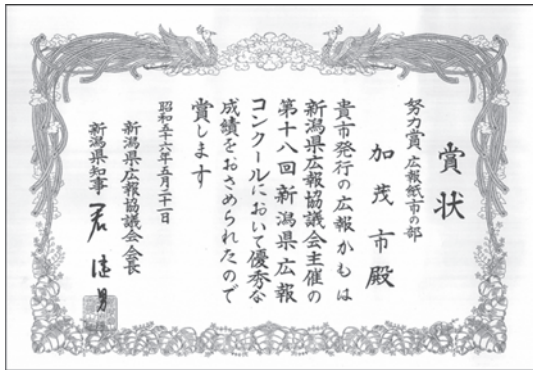 賞状
努力賞 広報紙市の部
加茂市殿
貴市発行の広報かもは
新潟県広報協議会主催の
第十八回新潟県広報
コンクールにおいて優秀な
成績をおさめられたので
賞します
昭和五十六年五月二十一日
新潟県広報協議会会長
新潟県知事 君健男